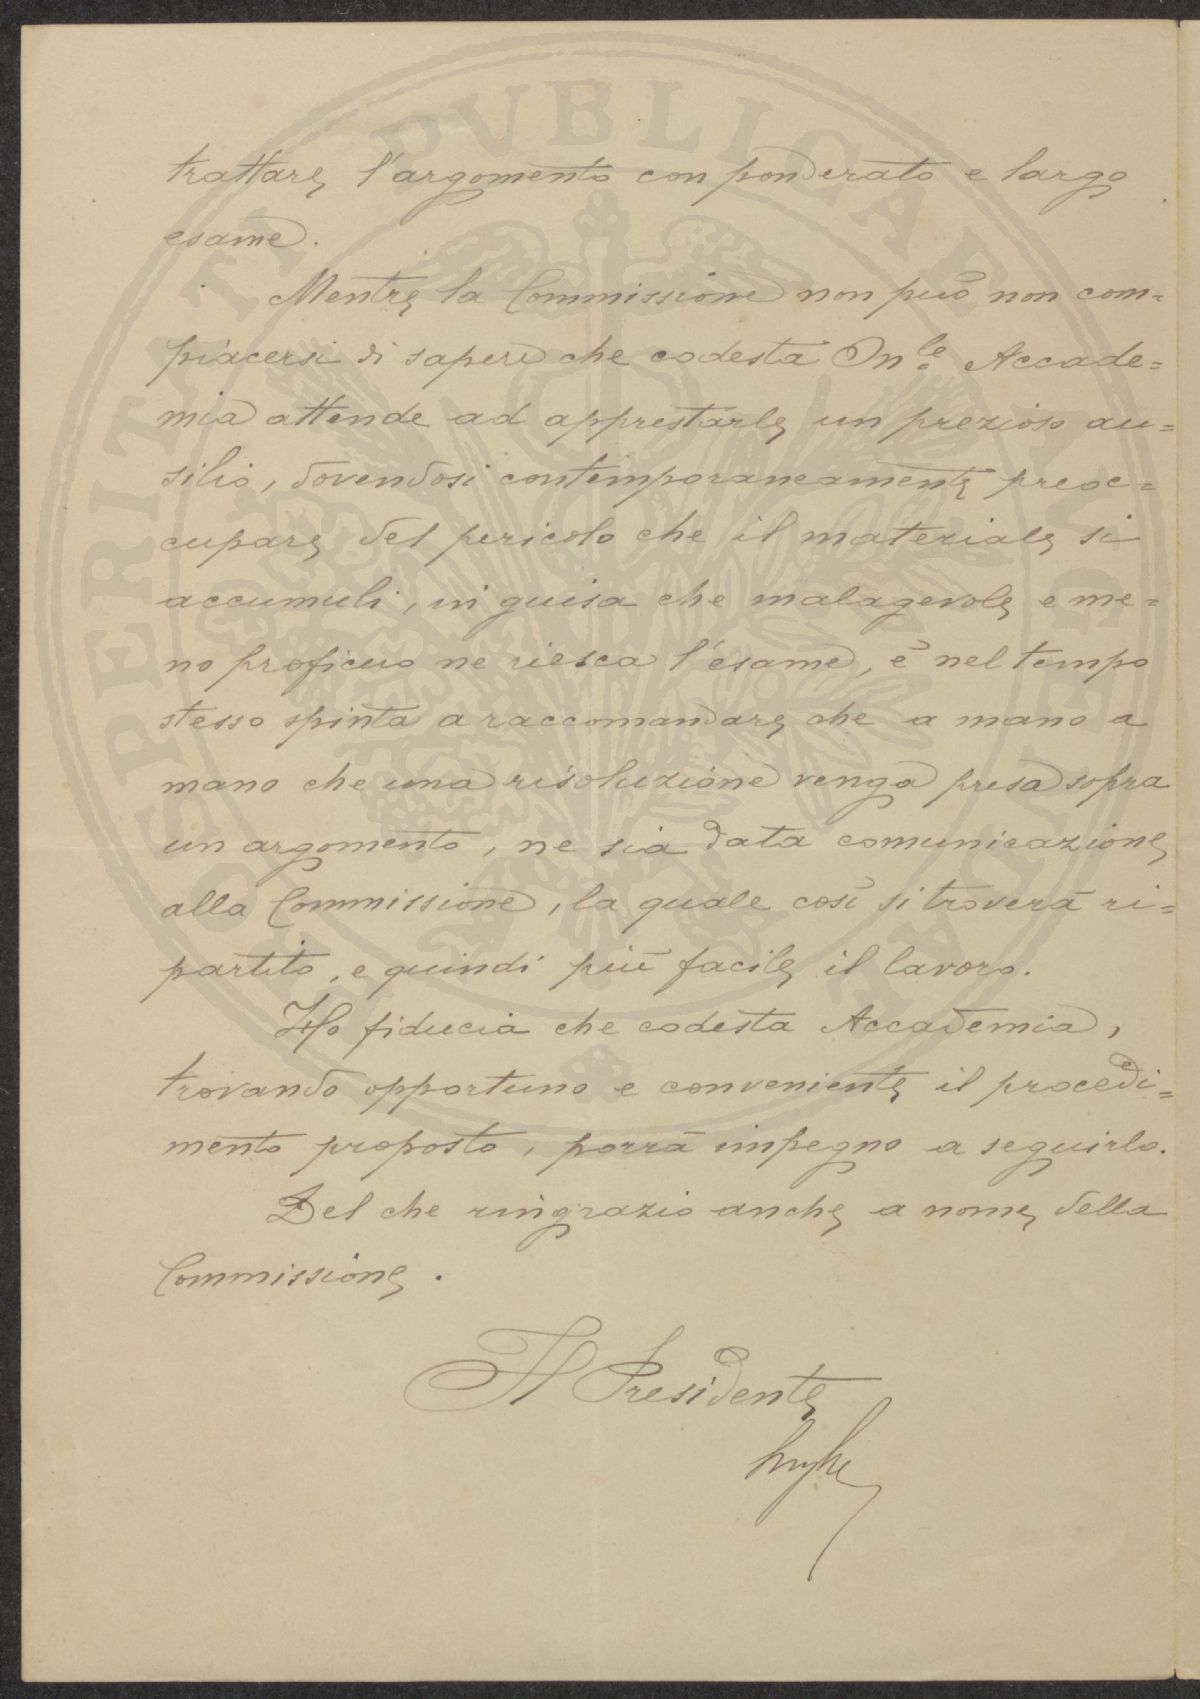 trattare l'argomento con ponderato e largo
esame.
Mentre la Commissione non può non com=
piacersi di sapere che codesta On.le Accade=
mia attende ad apprestarle un prezioso au=
silio, dovendosi contemporaneamente preoc=
cupare del pericolo che il materiale si
accumuli, in guisa che malagevole e me=
no proficuo ne riesca l'esame, è nel tempo
stesso spinta a raccomandare che a mano a
mano che una risoluzione venga presa sopra
un argomento, ne sia data comunicazione
alla Commissione, la quale così si troverà ri=
partito, e quindi più facile il lavoro.
Ho fiducia che codesta Accademia,
trovando opportuno e conveniente il procedi=
mento proposto, porrà impegno a seguirlo.
Del che ringrazio anche a nome della
Commissione.
Il Presidente